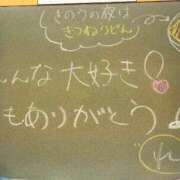 きのうの夜は
きつねうどん
んな大好き!
もありがとう
れ